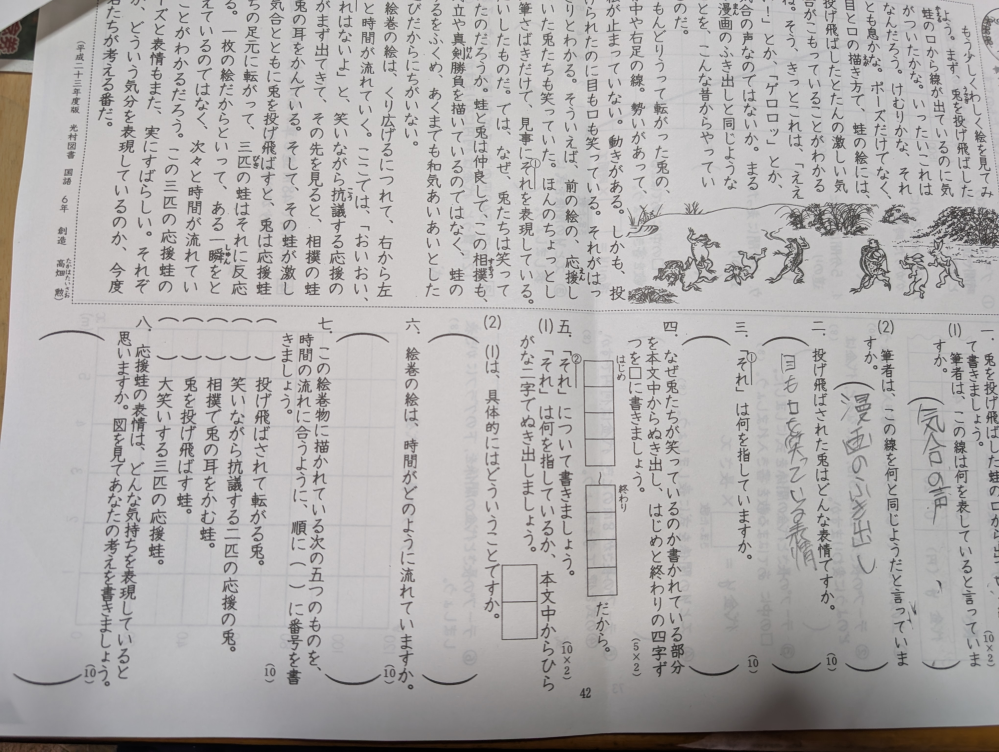 もう少しくわしく絵を見てみ
よう。まず、兎を投げ飛ばした
蛙の口から線が出ているのに気
がついたかな。いったいこれは
なんだろう。けむりかな、それ
とも息かな。ポーズだけでなく、
目と口の描き方で、蛙の絵には、
投げ飛ばしたとたんの激しい気
合がこもっていることがわかる
ね。そう、きっとこれは、「ええ
とか、「ゲロロッ」とか、
気合の声なのではないか。まる
漫画のふき出しと同じような
ことを、こんな昔からやってい
のだ。
もんどりうって転がった兎の、
中や右足の線。勢いがあって、
絵が止まっていない。動きがある。しかも、投
げられたのに目も口も笑っている。それがはっ
きりとわかる。そういえば、前の絵の、応援し
いた兎たちも笑っていた。ほんのちょっとし
筆さばきだけで、見事にそれを表現している。
たのだろうか。蛙と兎は仲良しで、この相撲も、
いしたものだ。では、なぜ、兎たちは笑って
立や真剣勝負を描いているのではなく、蛙の
るをふくめ、あくまでも和気あいあいとした
びだからにちがいない。
絵巻の絵は、くり広げるにつれて、右から左
と時間が流れていく。ここでは、「おいおい、
れはないよ」と、笑いながら抗議する応援の
がまず出てきて、その先を見ると、相撲の蛙
兎の耳をかんでいる。そして、その蛙が激し
気合とともに兎を投げ飛ばすと、兎は応援蛙
ちの足元に転がって、三匹の蛙はそれに反応
る。一枚の絵だからといって、ある一瞬をと
えているのではなく、次々と時間が流れてい
ことがわかるだろう。この三匹の応援蛙の
ーズと表情もまた、実にすばらしい。それぞ
が、どういう気分を表現しているのか、今度
たちが考える番だ。
(平成二十三年度版 光村図書 国語 6年 創造 高畑 勲)
一、
(1) 筆者は、この線は何を表していると言っていま
すか。
(10×2)
て書きましょう。
(気合の声)
(2) 筆者は、この線を何と同じようだと言っていま
すか。
(漫画のふき出し)
二、投げ飛ばされた兎はどんな表情ですか。
(10)
(目も口も笑っている表情)
三、「それ」は何を指していますか。
①
(10)
四、なぜ兎たちが笑っているのか書かれている部分
を本文中からぬき出し、はじめと終わりの四字ず
つを□に書きましょう。
(5×2)
はじめ
〜
終わり
だから。
五、「それ」について書きましょう。
②
(10×2)
(1) 「それ」は何を指しているか、本文中からひら
がな二字でぬき出しましょう。
(2) (1)は、具体的にはどういうことですか。
六、絵巻の絵は、時間がどのように流れていますか。
(10)
七、この絵巻物に描かれている次の五つのものを、
時間の流れに合うように、順に( )に番号を書
きましょう。
(10)
( ) 投げ飛ばされて転がる兎。
( ) 笑いながら抗議する二匹の応援の兎。
( ) 相撲で兎の耳をかむ蛙。
( ) 兎を投げ飛ばす蛙。
( ) 大笑いする三匹の応援蛙。
八、応援蛙の表情は、どんな気持ちを表現していると
思いますか。図を見てあなたの考えを書きましょう。
(10)
42